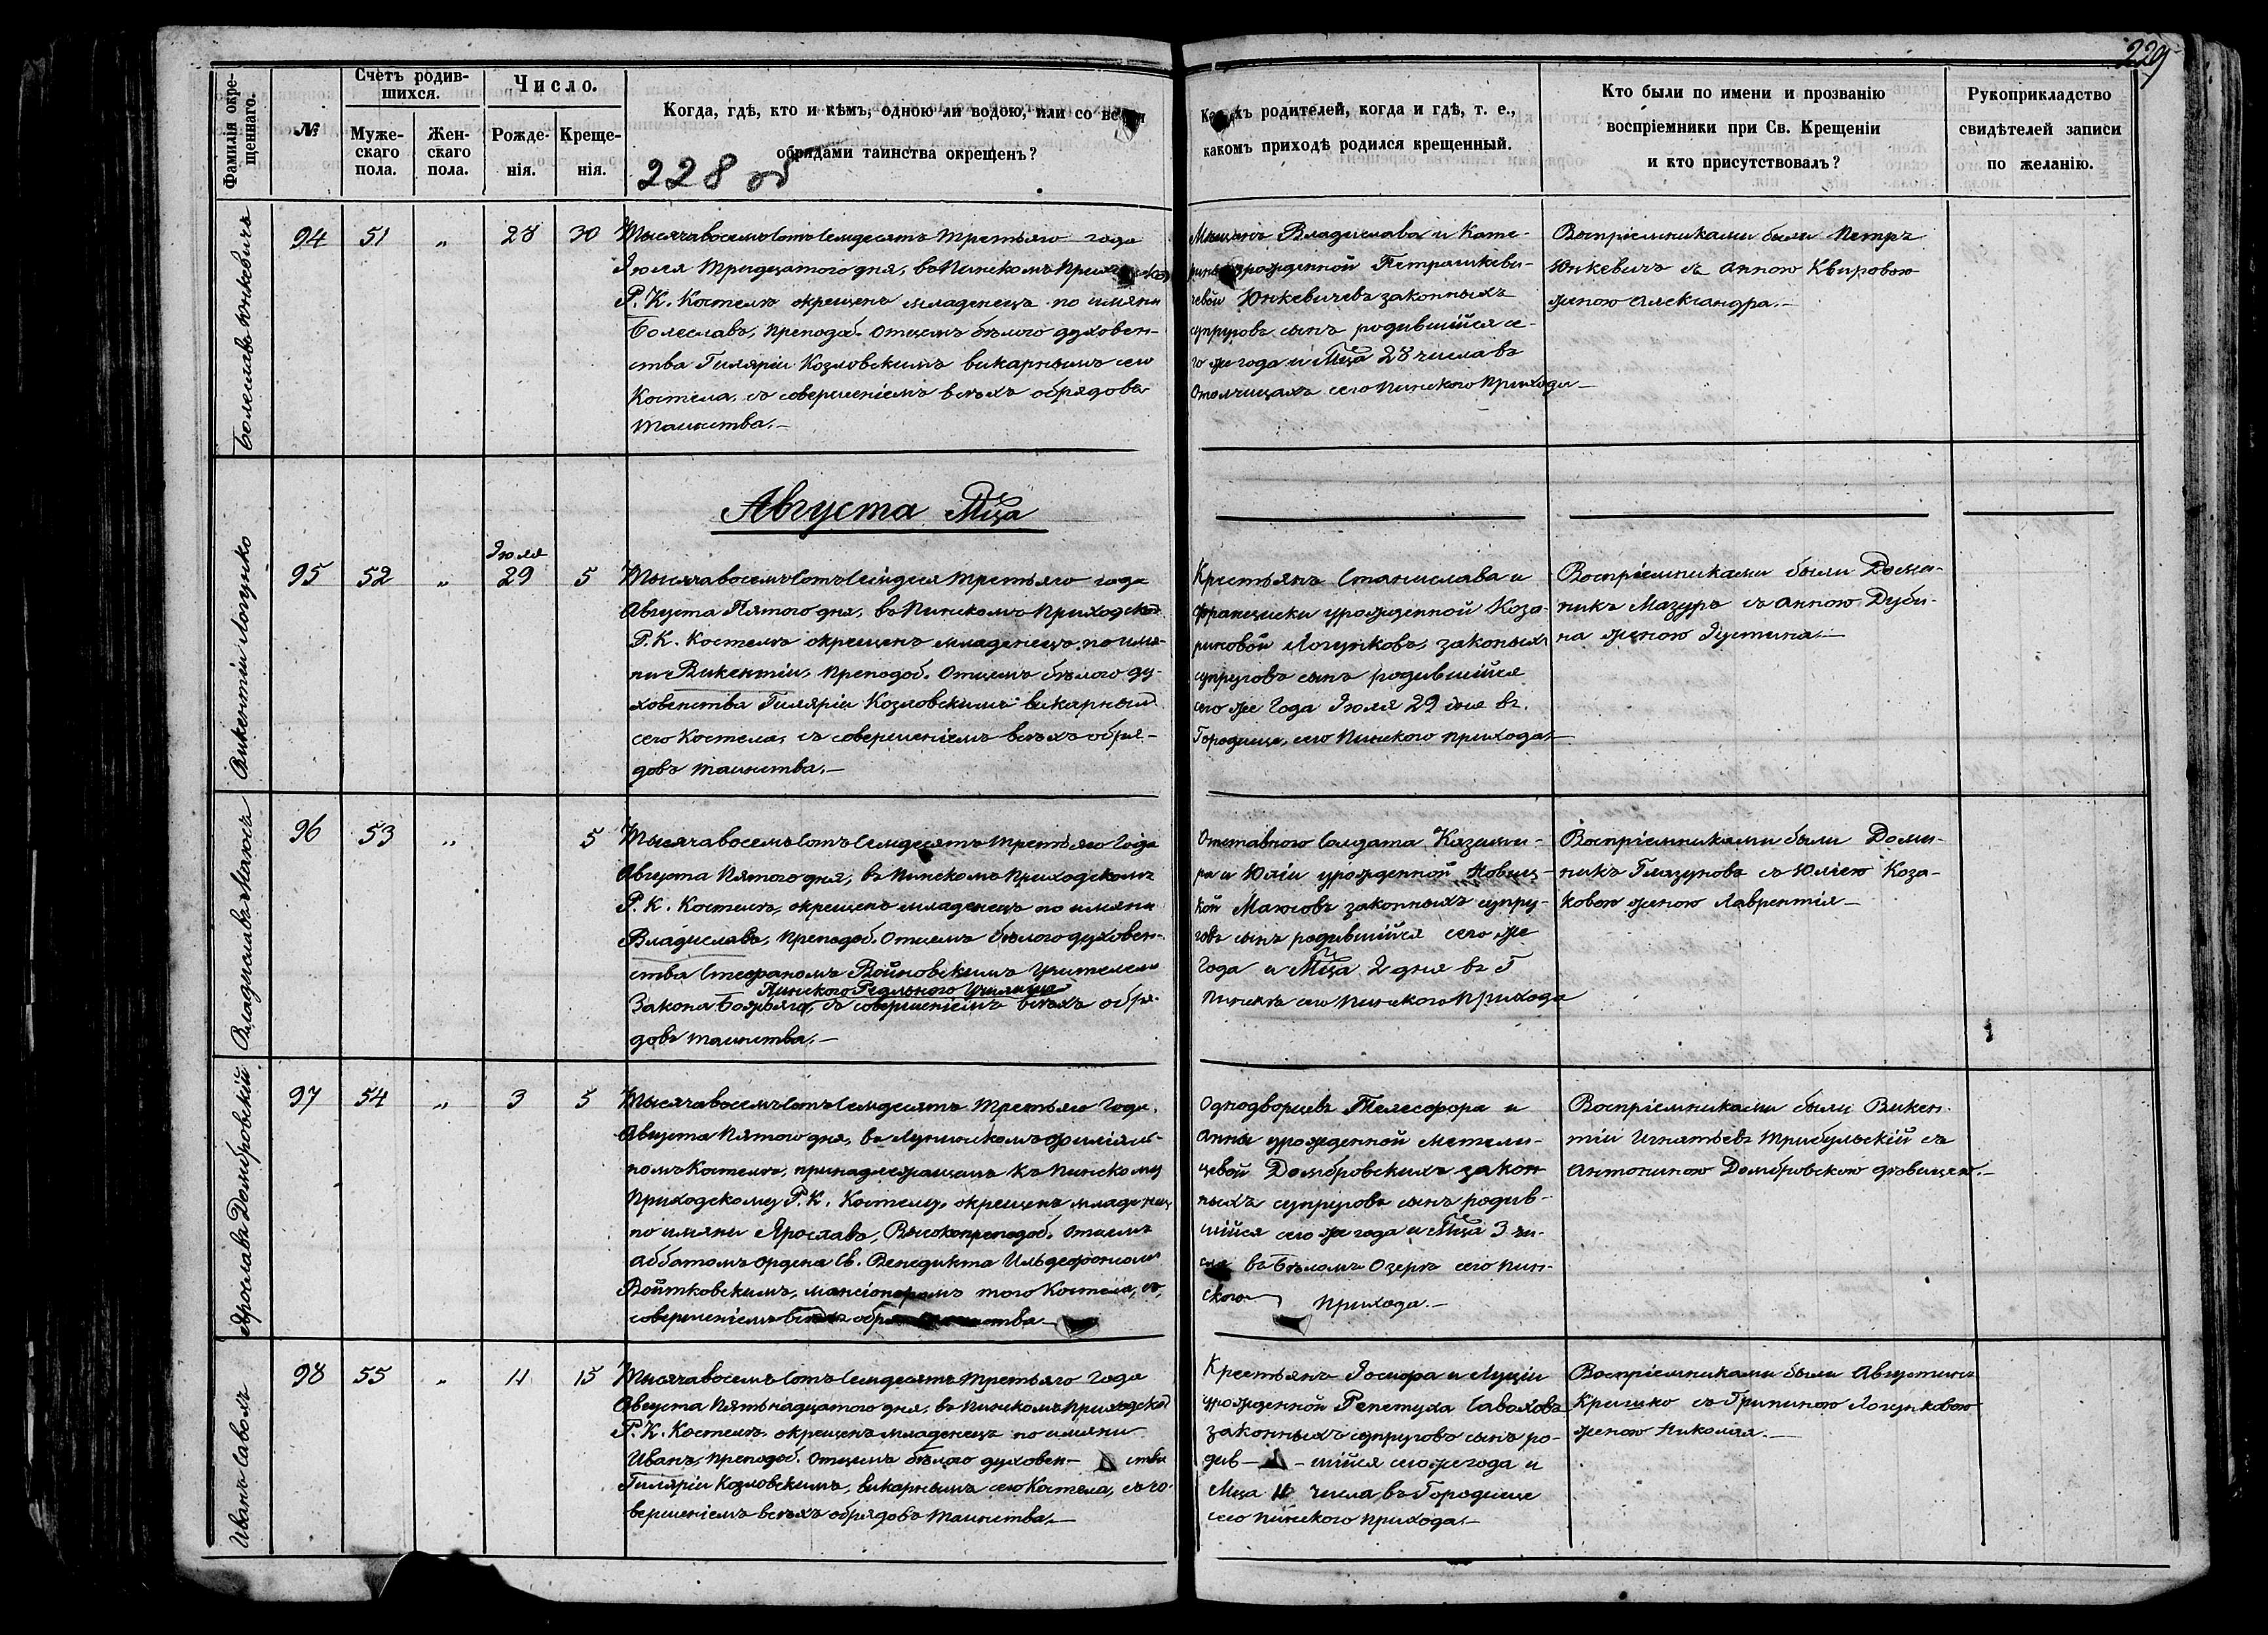 229
Фамилія окре-
щеннаго.
№
Счетъ родив-
шихся.
Муже-
скаго
пола.
Жен-
скаго
пола.
Число.
Рожде-
нія.
Креще-
нія.
Когда, гдѣ, кто и кѣмъ, одною ли водою, или со
обрядами таинства окрещенъ?
228 об
родителей, когда и гдѣ, т. е.,
какомъ приходѣ родился крещенный.
Кто были по имени и прозванію
воспріемники при Св. Крещеніи
и кто присутствовалъ?
Рукоприкладство
свидѣтелей записи
по желанію.
Болеславъ Юнкевичъ
94
51
„
28
30
Тысячавосемьсотъ Семдесятъ третьяго года
Іюля тридцатого дня, въ Пинскомъ
Р. К. Костелѣ окрещенъ младенецъ по имяни
Болеславъ, Преподоб. Отцемъ бѣлого духовен-
ства Гиляріи Козловскимъ викарнымъ сего
Костела, съ совершеніемъ всѣхъ обрядовъ
таинства.—
Мѣщанъ Владислава и Кате-
урожденной Петрашкеви-
чевой Юнкевичевъ законныхъ
супруговъ сынъ родившійся се-
го же года и Мца 28 числа въ
Отолчицахъ сего Пинского Прихода—
Воспріемниками были Петръ
Юнкевичъ съ Анною Квировою
женою Александра.—
Августа Мца
Викентіи Логунко
95
52
„
Іюля
29
5
Тысячавосемьсотъ Семдеся третьяго года
Августа Пятого дня, въ Пинскомъ Приходском
Р. К. Костелѣ окрещенъ младенецъ по имя-
ни Викентіи, Преподоб. Отцемъ бѣлого ду-
ховенства Гиляріи Козловскимъ викарным
сего Костела, съ совершеніемъ всѣхъ обря-
довъ таинства.—
Крестьянъ Станислава и
Францишки урожденной Коза-
риновой Логунковъ, законых
супруговъ сынъ родившійся
сего же Года Іюля 29 дня въ
Городище, сего Пинского прихода—
Воспріемниками были Доми-
никъ Мазуръ съ Анною Дуби-
на женою Іустина.—
Владиславъ Маюкъ
96
53
„
5
Тысячавосемьсотъ Семдесятъ третьяго Года
Августа Пятого дня, въ Пинскомъ Приходскомъ
Р. К. Костелѣ, окрещенъ младенецъ по имяни
Владиславъ, Преподоб. Отцемъ бѣлого духовен-
ства Стефаномъ Войновскимъ Учителем
Пинского Реального Училища
Закона Божьяго, съ совершеніемъ всѣхъ обря-
довъ таинства.—
Отставного Солдата Казими-
ра и Юліи урожденной Новиц-
кой Маюковъ законныхъ супру-
говъ сынъ родившійся сего же
Года и Мца 2 дня въ Г
Пинскѣ сего Пинского Прихода
Воспріемниками были Доми-
никъ Глазуновъ съ Юліею Коза-
ковою женою Лаврентія—
Ярославъ Домбровскій
97
54
„
3
5
Тысячавосемьсотъ Семдесятъ Третьяго Года.
Августа Пятого дня, въ Лунинскомъ филіяль-
номъ Костелѣ, принадлежащемъ къ Пинскому
Приходскому Р. К. Костелу, окрещенъ младенец
по имяни Ярославъ, Высокопреподоб. Отцемъ
Аббатомъ ордена Св. Венедикта Ильдефонсом
Войтковскимъ, мансіонеромъ того Костела, съ,
совершеніемъ всѣхъ
Однодворцевъ Телесфора и
Анны урожденной Метели-
цевой Домбровскихъ закон
ныхъ супруговъ сынъ родив-
шійся сего же года и Мца 3 чи-
въ Бѣломъ Озерѣ сего Пин-
ского Прихода.—
Воспріемниками были Викен-
тіи Игнатьевъ Трибульскій съ
Антониною Домбровскою дѣвицею.—
Иванъ Саволъ
98
55
„
11
15
Тысячавосемьсотъ Семдесятъ третьяго Года
Августа Пятьнадцатого дня, въ Пинскомъ Приходском
Р. К. Костелѣ окрещенъ младенецъ по имяни
Иванъ, Преподоб. Отцемъ бѣлого духовен- ства
Гиляріи Козловскимъ, викарнымъ сего Костела, съ со-
вершеніемъ всѣхъ обрядовъ таинства.—
Крестьянъ Іосифа и Луціи
урожденной Репетуха Саволовъ
законныхъ супруговъ сынъ ро-
див- -шійся сего же года и
Мца 11 числа въ Городище
сего Пинского прихода.—
Воспріемниками были Августинъ
Кришко съ Грипиною Логунковою
женою Николая.—